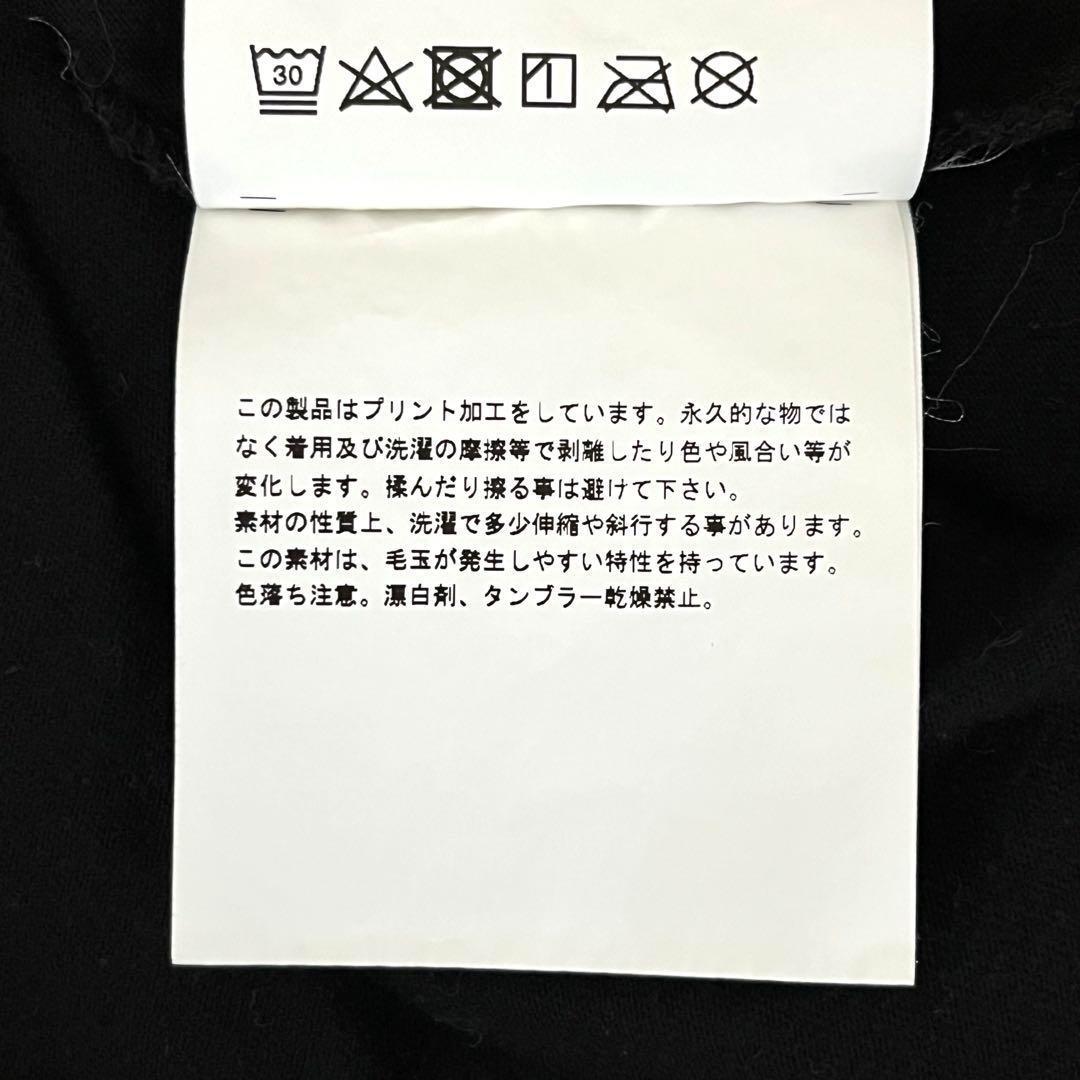 30
この製品はプリント加工をしています。永久的な物では
なく着用及び洗濯の摩擦等で剥離したり色や風合い等が
変化します。揉んだり擦る事は避けて下さい。
素材の性質上、洗濯で多少伸縮や斜行する事があります。
この素材は、毛玉が発生しやすい特性を持っています。
色落ち注意。漂白剤、タンブラー乾燥禁止。